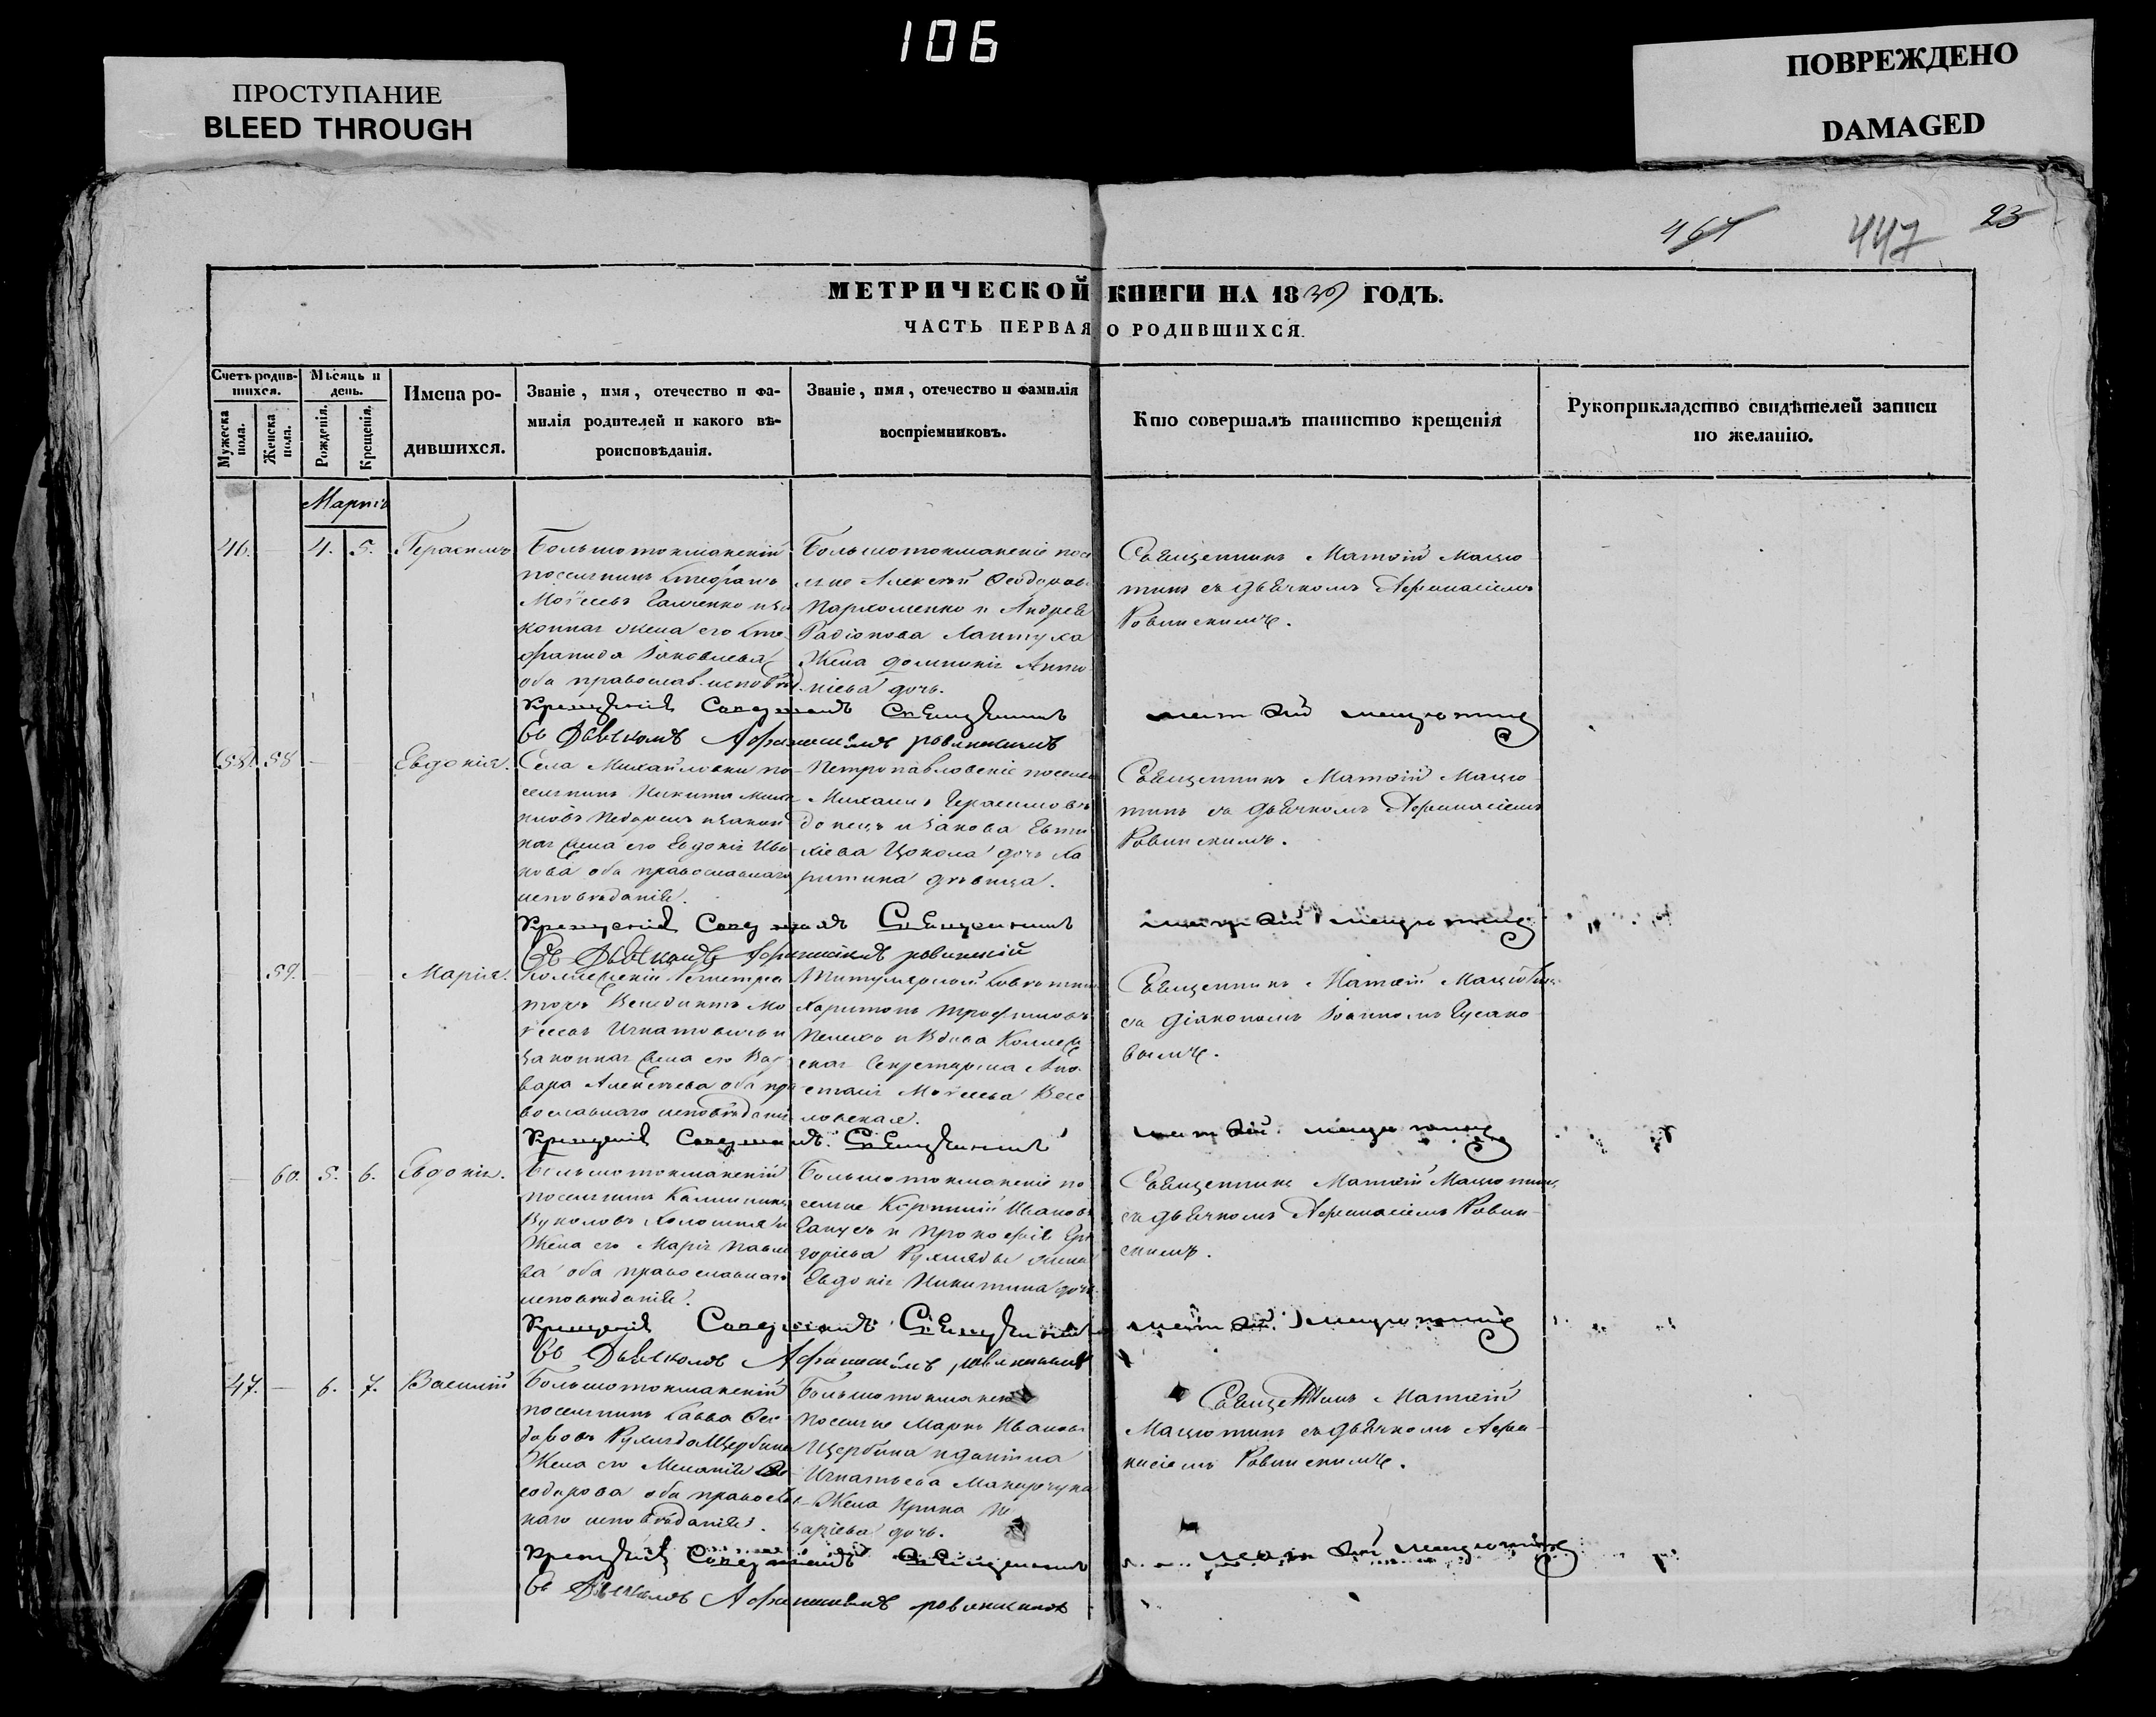 106
ПРОСТУПАНИЕ
BLEED THROUGH
ПОВРЕЖДЕНО
DAMAGED
464
447
23
МЕТРИЧЕСКОЙ КНИГИ НА 1839 ГОДЪ.
ЧАСТЬ ПЕРВАЯ О РОДИВШИХСЯ.
Счетъ родив-
шихся.
Мужеска
пола.
Женска
пола.
Мѣсяцъ и
день.
Рожденія.
Крещенія.
Имена ро-
дившихся.
Званіе, имя, отечество и фа-
милія родителей и какого вѣ-
роисповѣданія.
Званіе, имя, отечество и фамилія
воспріемниковъ.
Кто совершалъ таинство крещенія
Рукоприкладство свидѣтелей записи
по желанію.
Мартъ
46. 4. 5. Герасимъ
Большотокмакскій
поселянинъ Стефанъ
Моѵсеевъ Ганченко и за
конная жена его Сте
фанида Іаковлева
оба православ. исповѣд.
Большотокмакскіе посе
ляне Алексѣй Ѳеодоровъ
Пархоменко и Андрея
Радіонова Лаптуха
жена Домникія Анто
ніева дочь.
Священникъ Матѳій Мацю
тинъ съ дьячкомъ Аѳанасіемъ
Ровинскимъ.
Крещеніе Совершалъ Священникъ Матѳій Мацютинъ
Съ Дьячкомъ Афанасіемъ Ровинскимъ
58. Евдокія.
Села Михайловки по
селянинъ Никита Миха
иловъ и закон
ная жена его Евдокія Ива
нова оба православнаго
исповѣданія.
Петропавловскіе поселяне
Михаилъ Герасимовъ
Донецъ и Іакова Евти
хіева Цокола дочь Ха
ритина дѣвица.
Священникъ Матѳій Мацю
тинъ съ дьячкомъ Аѳанасіемъ
Ровинскимъ.
Крещеніе Совершалъ Священникъ Матѳій Мацютинъ
Съ Дьячкомъ Афанасіемъ Ровинскій
59. Марія.
Коллежскій Регистра
торъ Венедиктъ Мо
ѵсеевъ Игнатовичъ и
законная жена его Вар
вара Алексѣева оба пра
вославнаго исповѣданія
Титулярный Совѣтникъ
Харитонъ Трофимовъ
и вдова Коллеж
ская Секретарша Ана
стасія Моѵсеева Весе
ловская.
Священникъ Матѳій Мацютинъ
съ діакономъ Іоанномъ Гусако
вымъ.
Крещеніе Совершалъ Священникъ Матѳій Мацютинъ
60. 5. 6. Евдокія.
Большотокмакскій
поселянинъ Каллиникъ
Вуколовъ и
жена его Марія Павло
ва оба православнаго
исповѣданія.
Большотокмакскіе по
селяне Корнилій Ивановъ
и Прокофія Гри
горіева жена
Евдокія Никитина дочь.
Священникъ Матѳій Мацютинъ
съ дьячкомъ Аѳанасіемъ Ровин
скимъ.
Крещеніе Совершалъ Священникъ Матѳій Мацютинъ
Съ Дьячкомъ Афанасіемъ Ровинскимъ
47. 6. 7. Василій
Большотокмакскій
поселянинъ Савва Ѳео
доровъ
жена его Меланія Ѳе
одорова оба православ
наго исповѣданія.
Большотокмакскіе
поселяне Маркъ Ивановъ
Щербина и
Игнатьева
жена Ирина
дочь.
Священникъ Матѳій
Мацютинъ съ дьячкомъ Аѳа
насіемъ Ровинскимъ.
Крещеніе Совершалъ Священникъ Матѳій Мацютинъ
Съ Дьячкомъ Афанасіемъ Ровинскимъ